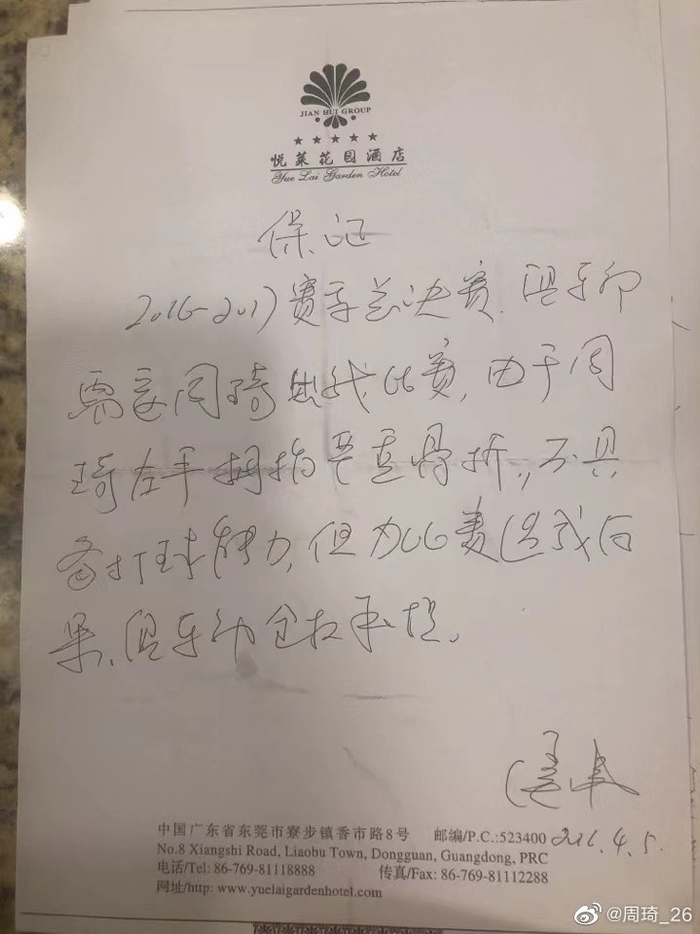 JIAN HUI GROUP
★★★★★
悦莱花园酒店
Yue Lai Garden Hotel
保证
2016-2017赛季总决赛.俱乐部
需要周琦出战比赛,由于周
琦左手拇指严重骨折,,不具
备打球能力,但为比赛造成后
果、俱乐部全权承担.
2016.4.5.
中国广东省东莞市寮步镇香市路8号 邮编/P.C.:523400
No.8 Xiangshi Road, Liaobu Town, Dongguan, Guangdong, PRC
电话/Tel: 86-769-81118888 传真/Fax: 86-769-81112288
网址/http: www.yuelaigardenhotel.com
@周琦_26